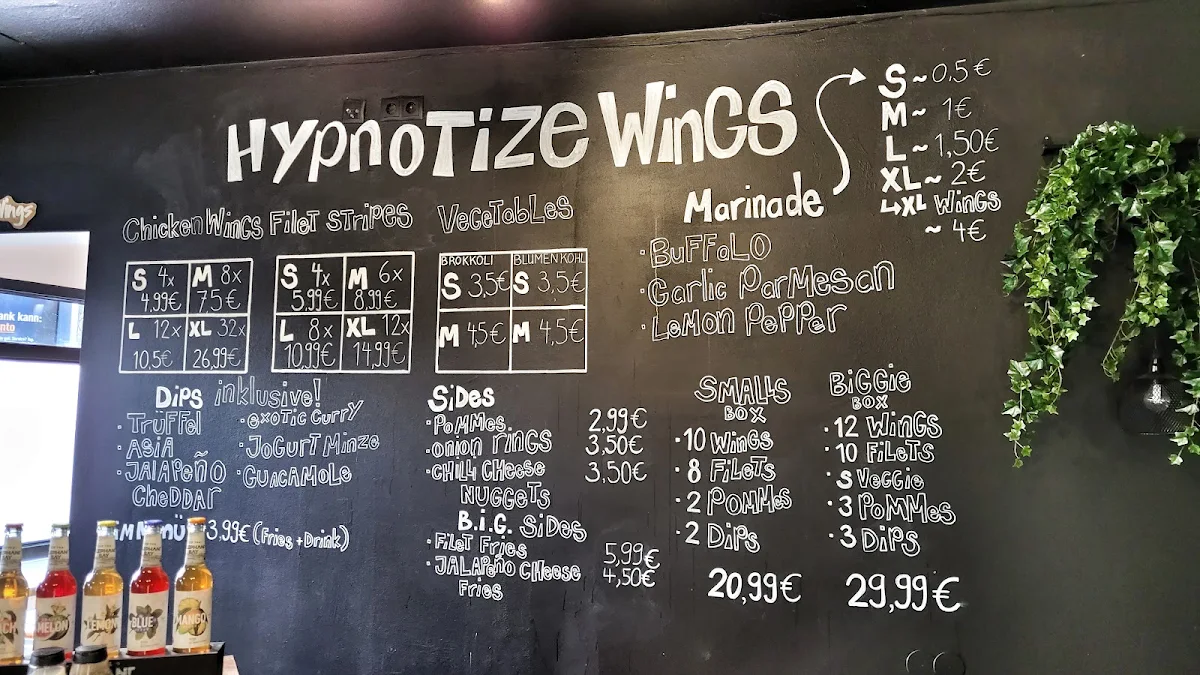 HYPNOTIZE WINGS
S ~ 0,5€
M ~ 1€
L ~ 1,50€
XL ~ 2€
↳XL WINGS
~ 4€
Marinade
· BUFFALO
· Garlic Parmesan
· Lemon Pepper
Chicken Wings
S 4x
4,99€
M 8x
7,5€
L 12x
10,5€
XL 32x
26,99€
Filet Stripes
S 4x
5,99€
M 6x
8,99€
L 8x
10,99€
XL 12x
14,99€
Vegetables
BROKKOLI
S 3,5€
M 4,5€
BLUMENKOHL
S 3,5€
M 4,5€
Dips inklusive!
· TRÜFFEL
· ASIA
· JALAPEÑO
CHEDDAR
· EXOTIC CURRY
· JOGURT MINZE
· GUACAMOLE
3,99€ (Fries + Drink)
Sides
· POMMES 2,99€
· ONION RINGS 3,50€
· CHILI CHEESE 3,50€
NUGGETS
B.I.G. SIDES
· FILET FRIES 5,99€
· JALAPEÑO CHEESE 4,50€
FRIES
SMALLS
BOX
· 10 WINGS
· 8 FILETS
· 2 POMMES
· 2 DIPS
20,99€
BIGGIE
BOX
· 12 WINGS
· 10 FILETS
· S VEGGIE
· 3 POMMES
· 3 DIPS
29,99€
MELON
LEMON
BLUE
MANGO